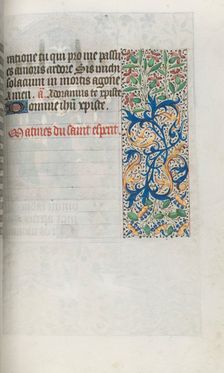 ratione tu qui pro me passus
es amoris ardore Sis michi
solacium in mortis agone
Amen. a Adoramus te xpiste
Domine ihu xpiste.
Matines du saint esperit.